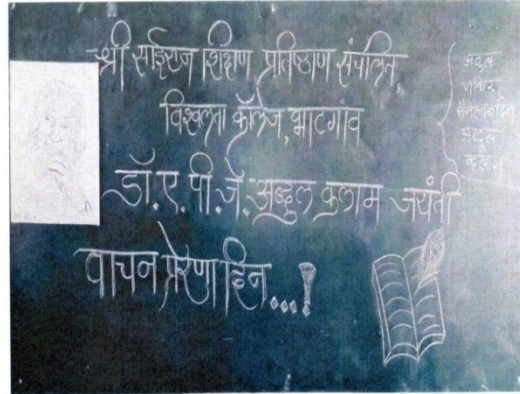 श्री साईराज शिक्षण प्रतिष्ठाण संचलित,
विश्वलता कॉलेज, भाटगांव
डॉ. ए. पी. जे. अब्दुल कलाम जयंती
वाचन प्रेरणा दिन...!
अवुल
पाकिर
जैनुलाबदिन
अब्दुल
कलाम